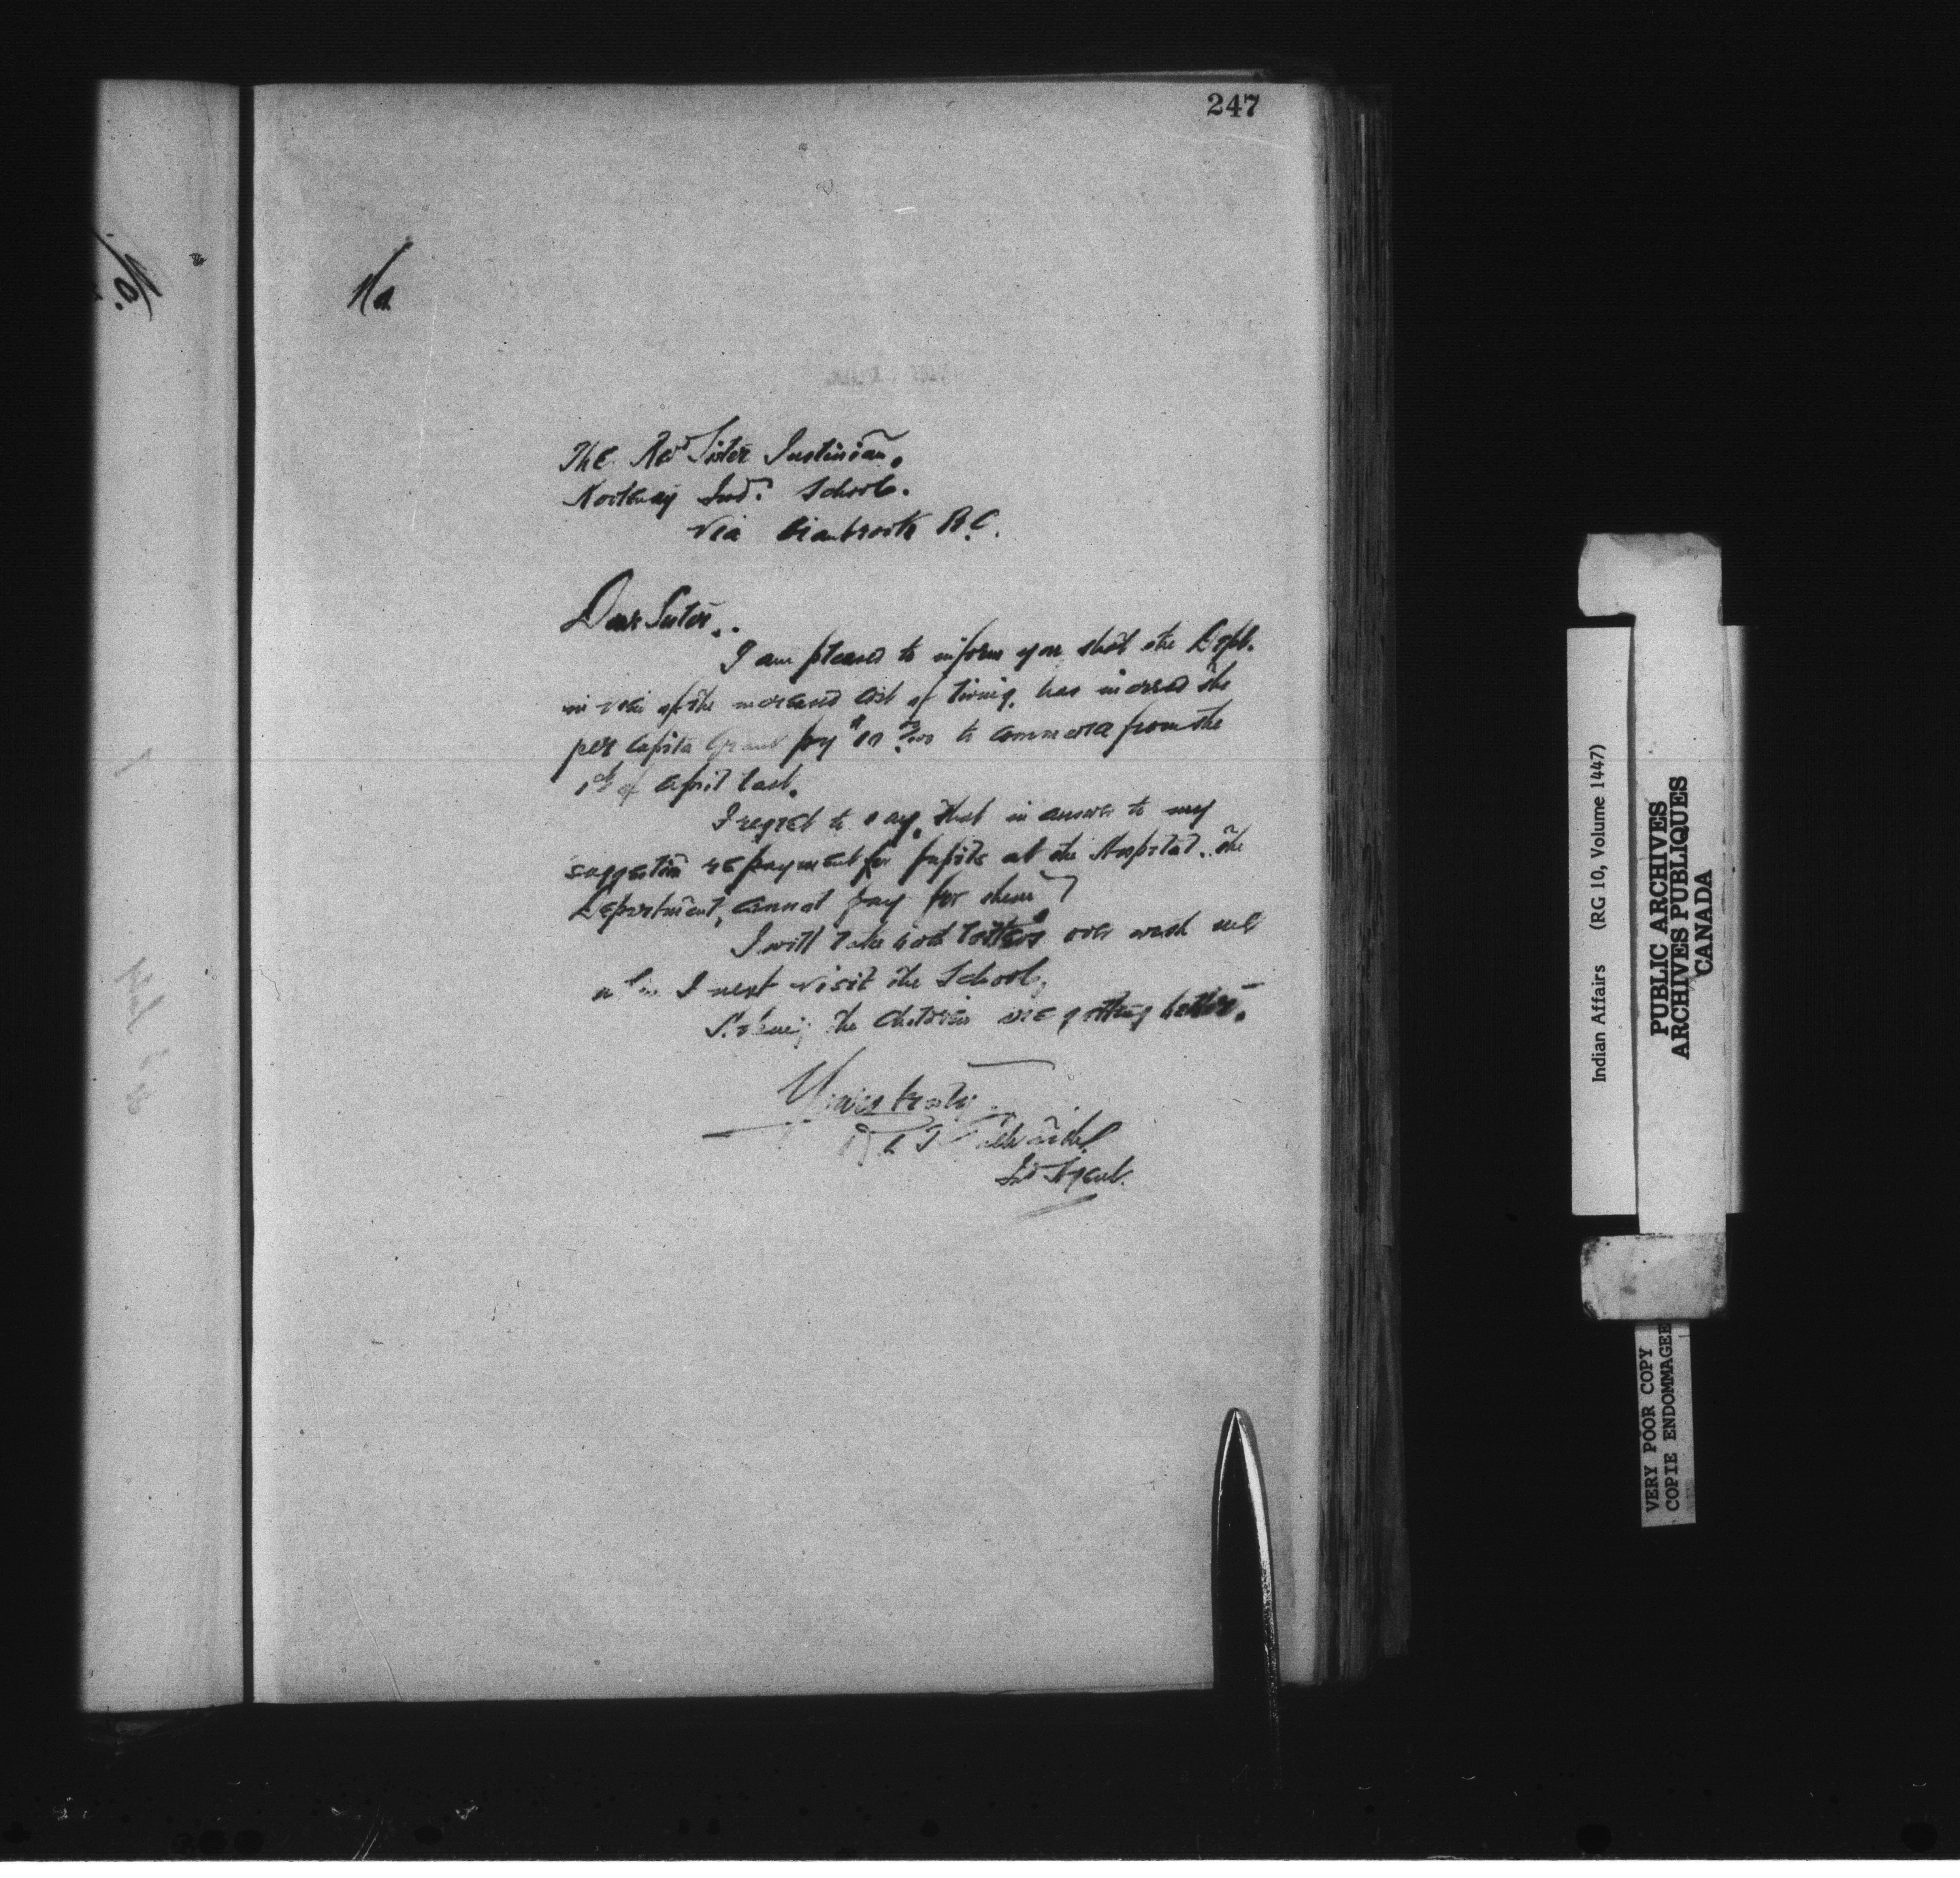 247
No.
No
The Revd Sister Justinian.
Kootenay Ind. School.
Via Cranbrook B.C.
Dear Sister..
I am pleased to inform you that the Dept.
in view of the increased cost of living, has incresed the
per capita Grant by $10 to commence from the
1st of April last.
I regret to say, that in answer to my
suggestion re payment for pupils at the Hospital. the
Department, cannot pay for them
I will take both letters over with me
when I next visit the School,
the children are getting better.
Yours truly
Ind Agent.
Indian Affairs (RG 10, Volume 1447)
PUBLIC ARCHIVES
ARCHIVES PUBLIQUES
CANADA
VERY POOR COPY
COPIE ENDOMMAGEE